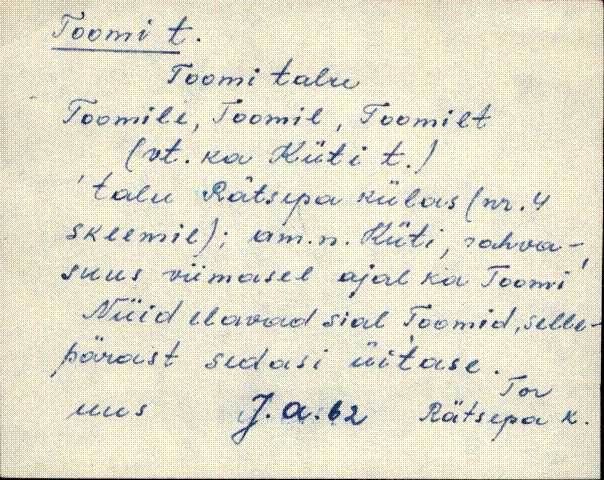 Toomi t.
Toomi talu
Toomile, Toomil, Toomilt
(vt. ka Küti t.)
'talu Rätsepa külas (nr. 4
skeemil); am.n. Küti, rahva-
suus viimasel ajal ka Toomi'
Nüid elavad sial Toomid, selle-
pärast sedasi üitase.
uus J.a.62 Tor
Rätsepa k.